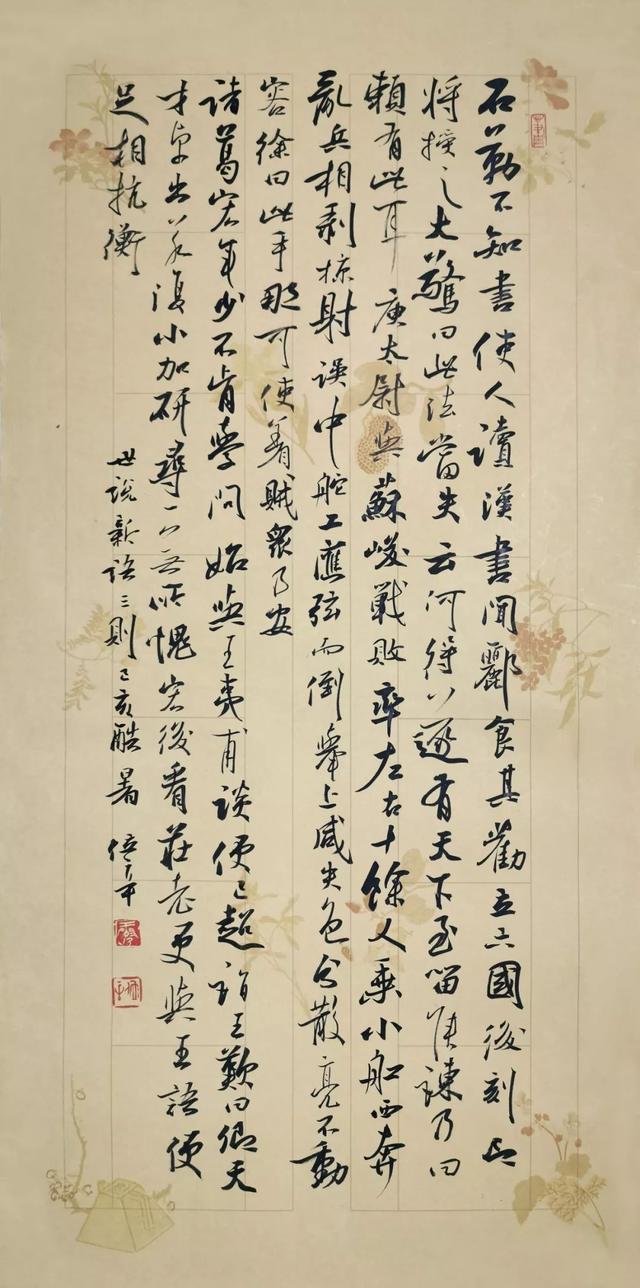 石勒不知書使人讀漢書聞酈食其勸立六國後刻印
將授之大驚曰此法當失云何得以遂有天下至留侯諫乃曰
賴有此耳 庾太尉與蘇峻戰敗率左右十餘人乘小船西奔
亂兵相剥掠射誤中舵工應弦而倒舉上咸失色分散亮不動
容徐曰此手那可使着賊衆乃安
諸葛宏年少不肯學問始與王夷甫談便已超詣王歎曰卿天
才卓出若復小加研尋一無所愧宏後看莊老更與王語便
足相抗衡
世說新語三則己亥酷暑